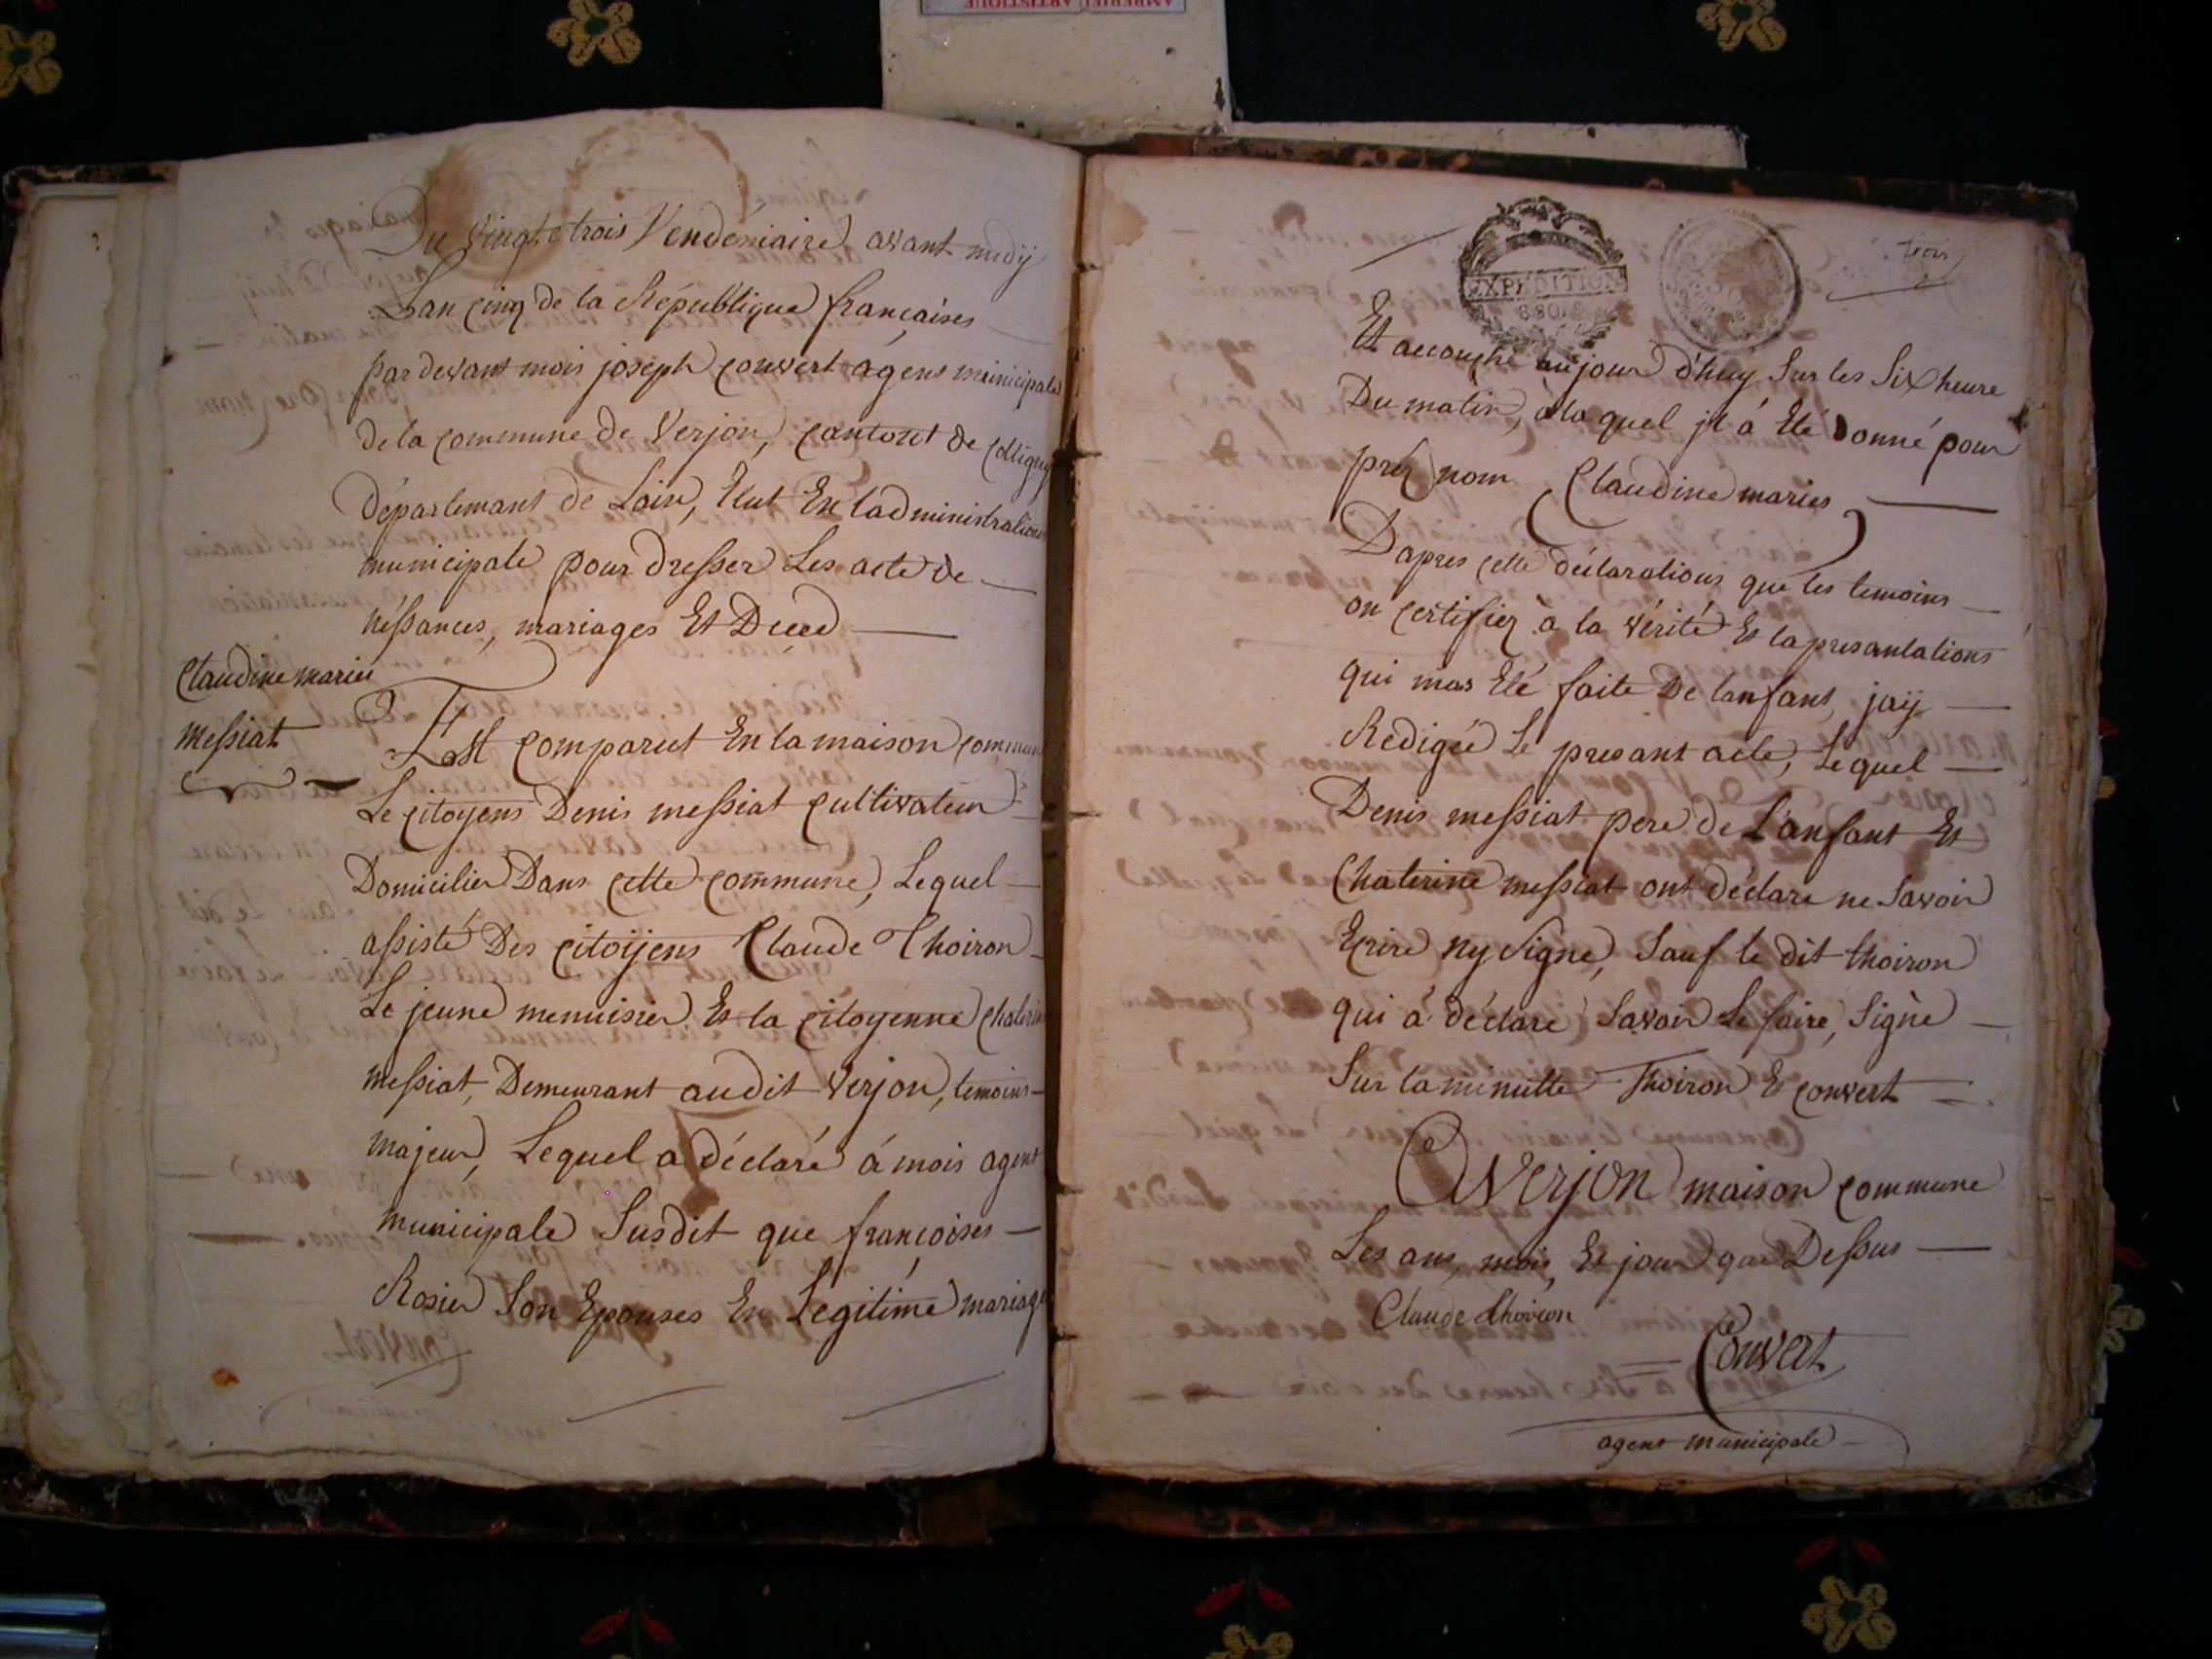 AMBERIEU ARTISTIQUE
Du vingt e trois Vendémiaire avant midy
Lan cinq de la République françaises
par devant mois joseph convert agent municipale
de la commune de Verjon, cantont de Colligny
Départemant de Lain, Elut En ladministration
municipale pour dresser Les acte de
néssances, mariages Et Deced
Claudine maries
messiat
Est comparut En la maison commune
Le citoyens Denis messiat cultivateur
Domicilier Dans cette commune, Lequel
assisté Des citoijens Claude Thoiron
Le jeune menuisier Et la citoyenne Chaterine
messiat, Demeurant audit Verjon, temoins
majeur, Lequel a déclaré á mois agent
municipale Susdit que francoises
Rosier Son Epouses En Legitime mariage
trois
EXPEDITION
Et accouché aujour d'huy Sur les Six heure
Du matin, a la quel jl á Eté Donné pour
préz nom Claudine maries
Dapres cette déclarations que les temoins
on certifiez a la vérité Et la presantations
qui mas Eté faite De lanfant, jaÿ
Redigée Le presant acte, Lequel
Denis messiat pere de L'anfant Et
Chaterine messiat ont déclare ne Savoir
Ecrire ny Signe, Sauf le dit thoiron
qui á déclare Savoir Le faire, Signè
Sur la minutte Thoiron E convert
A Verjon maison commune
Les ans, mois, Et jour que Dessus
Claude thoiron
Convert
agent municipale